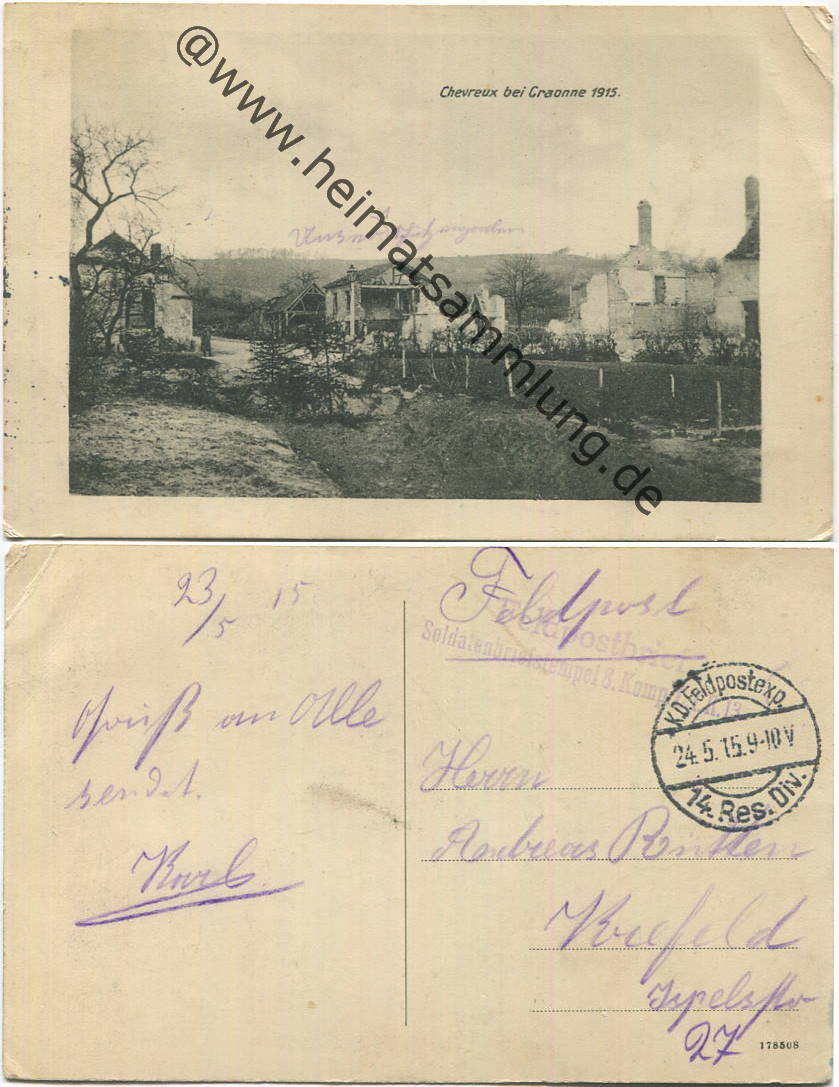 @www.heimatsammlung.de
Chevreux bei Craonne 1915.
23/5 15
Gruß an Alle
sendet.
Karl
Feldpost
Feldpostbrief
Soldatenbriefstempel 8. Komp.
K.D.Feldpostexp.
24.5.15.9-10V
14. Res. Div.
Herrn
Andreas Rütten
Krefeld
27
178508